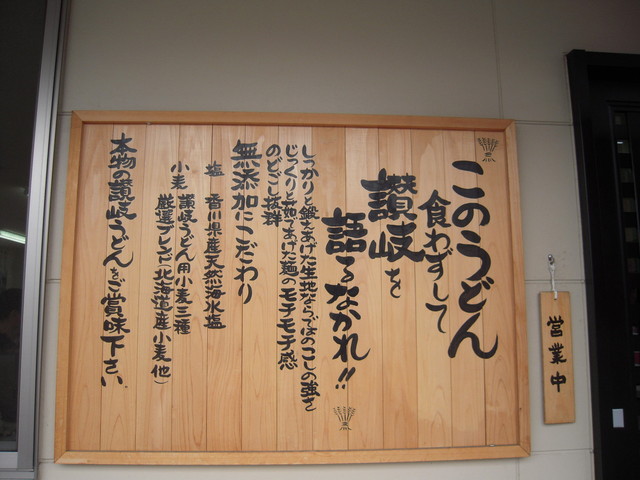 このうどん
食わずして
讃岐を
語るなかれ!!
しっかりと鍛えあげた生地ならではのこしの強さ
じっくりと茹であげた麺のモチモチ感
のどごし抜群
無添加にこだわり
塩 香川県産天然海水塩
小麦 讃岐うどん用小麦三種
厳選ブレンド(北海道産小麦 他)
本物の讃岐うどんをご賞味下さい。
営業中